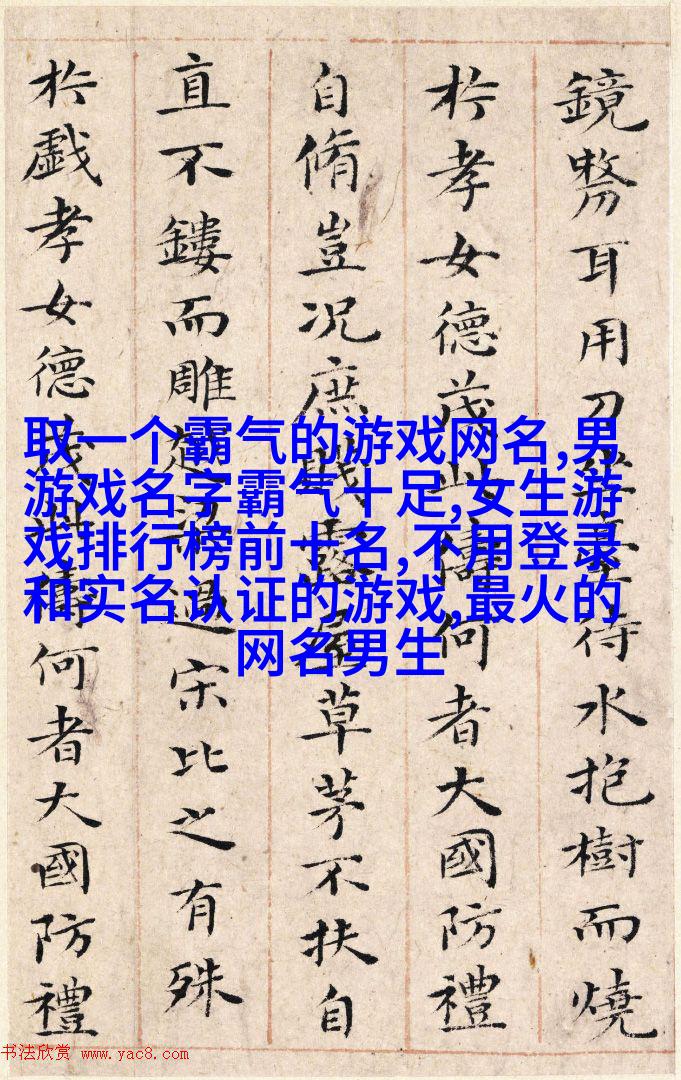 鏡剺耳用刀坐臺待水抱樹而燒
於孝女德茂此儔何者大國防禮
自脩豈況庶賤露屋草茅不扶自
直不鏤而雕越梁過宋比之有殊
於戲孝女德茂此儔何者大國防禮
取一个霸气的游戏网名,男
游戏名字霸气十足,女生游
戏排行榜前十名,不用登录
和实名认证的游戏,最火的
网名男生
书法欣赏 www.yac8.com